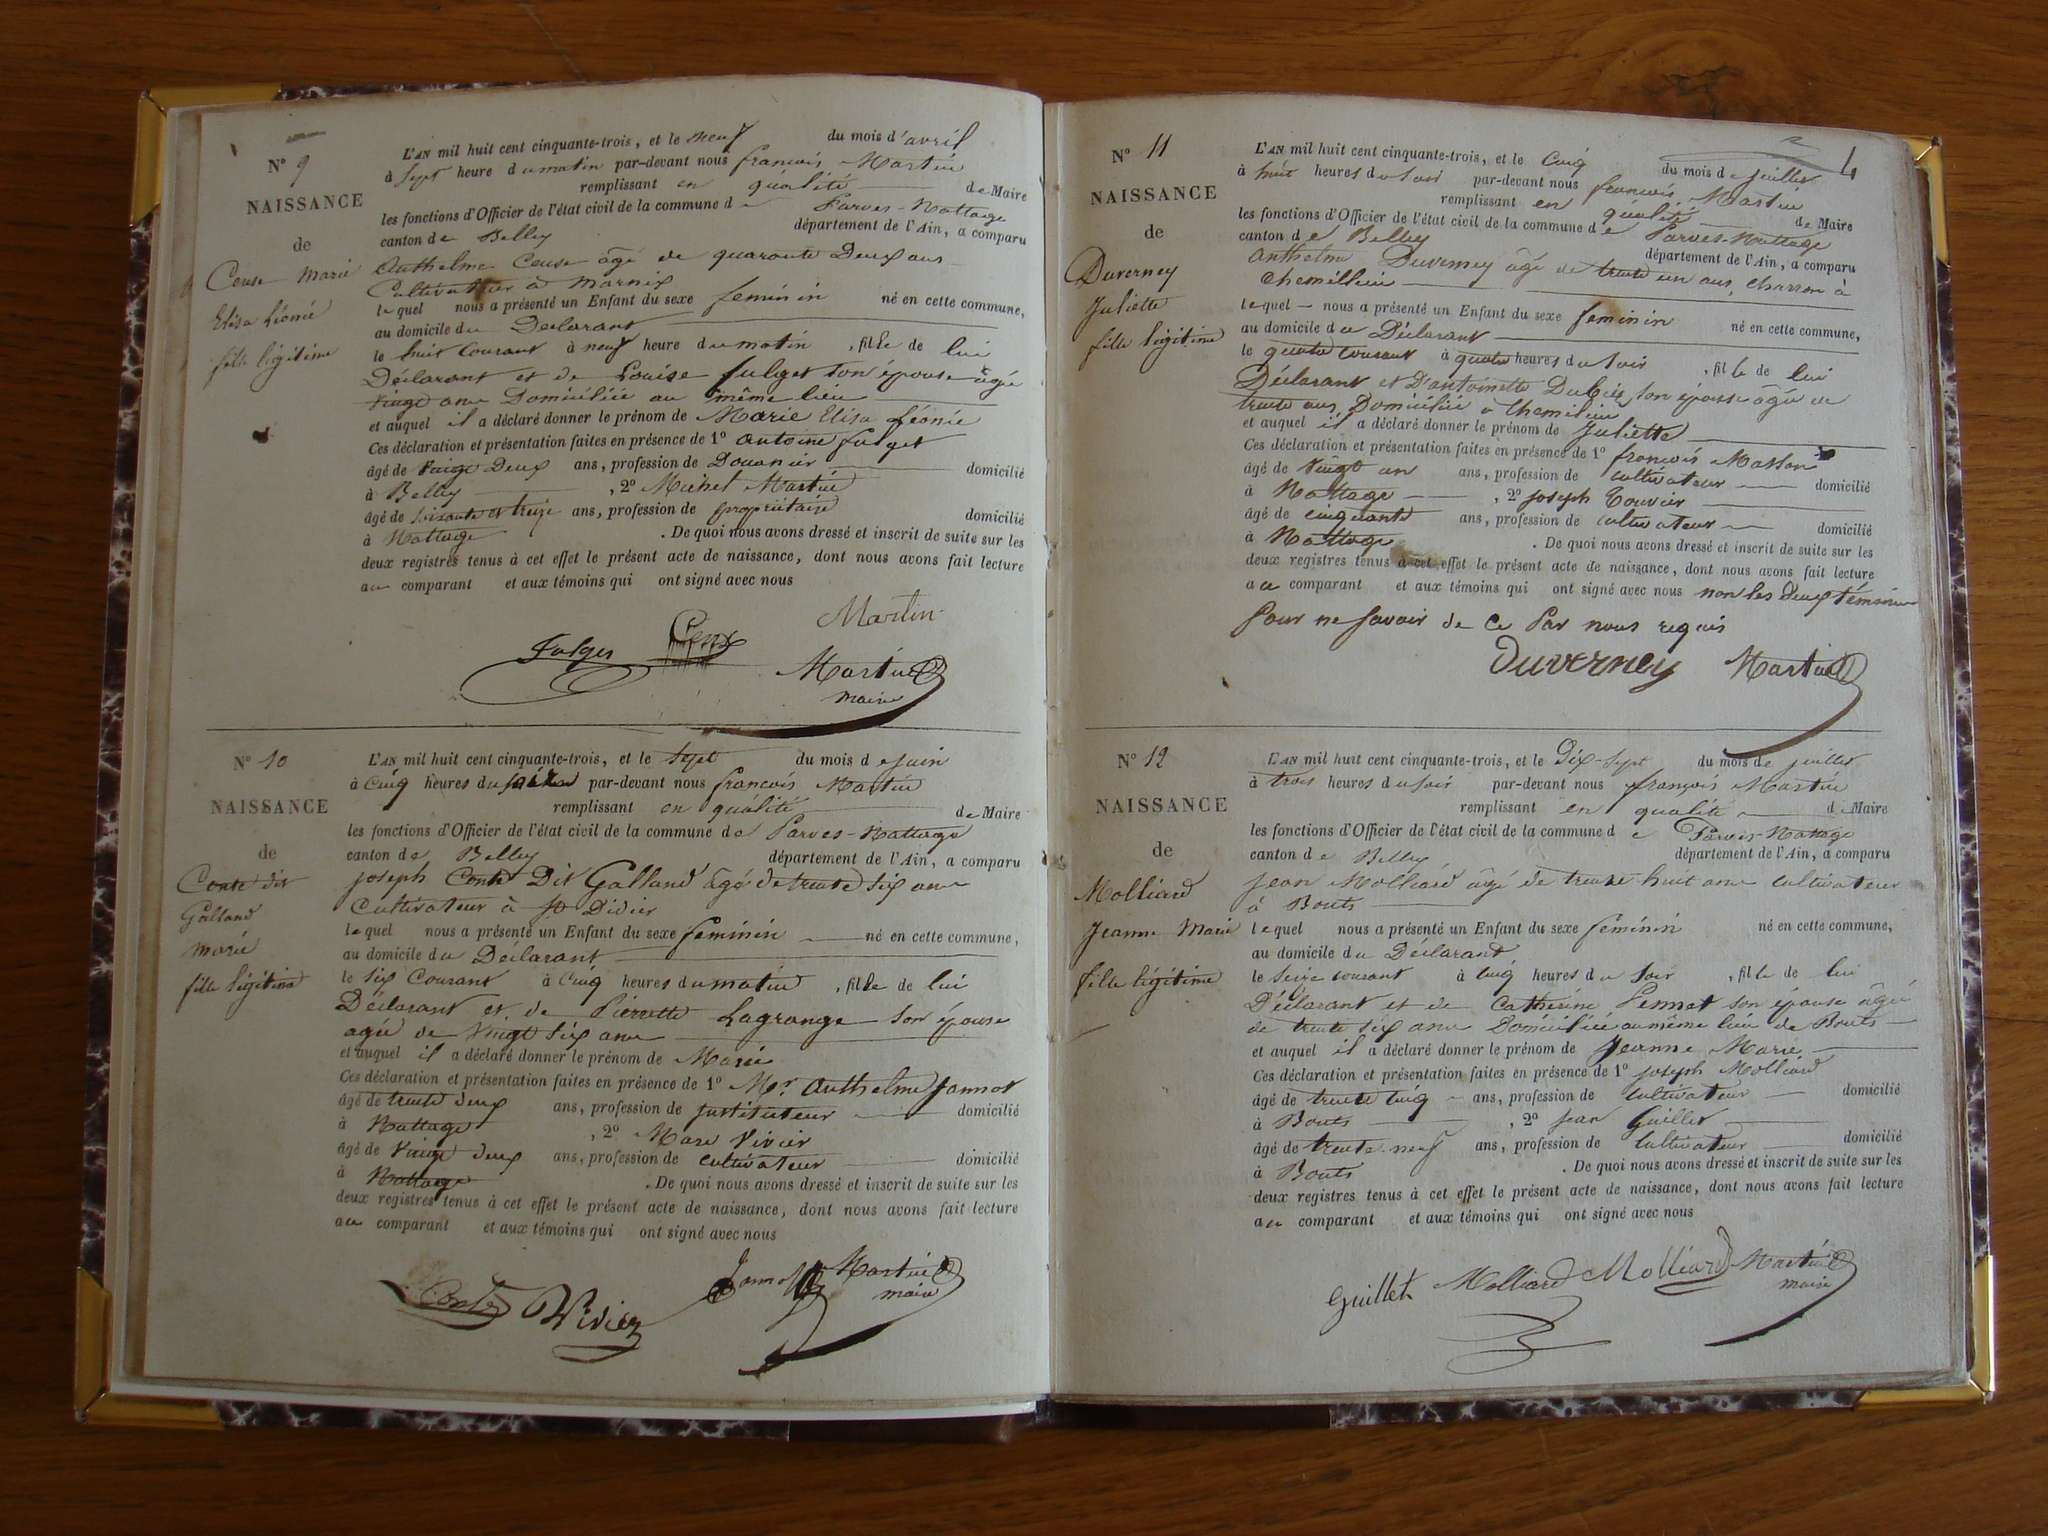 N° 9
NAISSANCE
de
Ceuse Marie
Elisa Léonie
fille légitime
L'AN mil huit cent cinquante-trois, et le neuf du mois d'avril
à Sept heure du matin par-devant nous françois Martin
remplissant en qualité de Maire
les fonctions d'Officier de l'état civil de la commune de Parves-Nattage
canton de Belley département de l'Ain, a comparu
Anthelme Ceuse âgé de quarante Deux ans
Cultivateur à Marnix
lequel nous a présenté un Enfant du sexe feminin né en cette commune,
au domicile du Déclarant
le huit Courant à neuf heure du matin , fille de lui
Déclarant et de Louise fulget son épouse âgée
Domiciliée au même lieu
et auquel il a déclaré donner le prénom de Marie Elisa Léonie
Ces déclaration et présentation faites en présence de 1° antoine fulget
âgé de Vingt Deux ans, profession de Douanier domicilié
à Belley , 2° Michel Martin
âgé de soixante et treize ans, profession de propriétaire domicilié
à Nattage . De quoi nous avons dressé et inscrit de suite sur les
deux registres tenus à cet effet le présent acte de naissance, dont nous avons fait lecture
au comparant et aux témoins qui ont signé avec nous
Martin
Martin
maire
N° 10
NAISSANCE
de
Conte dit
Galland
Marie
fille légitime
L'AN mil huit cent cinquante-trois, et le Sept du mois de juin
à Cinq heures du par-devant nous françois Martin
remplissant en qualité de Maire
les fonctions d'Officier de l'état civil de la commune de Parves-Nattage
canton de Belley département de l'Ain, a comparu
joseph Conte Dit Galland âgé de trente six ans
Cultivateur à St Didier
lequel nous a présenté un Enfant du sexe feminin né en cette commune,
au domicile du Déclarant
le six Courant à Cinq heures du matin , fille de lui
Déclarant et de Pierrette Lagrange son épouse
agée de Vingt six ans
et auquel il a déclaré donner le prénom de Marie
Ces déclaration et présentation faites en présence de 1° Mr. Anthelme Jannot
âgé de trente deux ans, profession de Justituteur domicilié
à Nattage , 2° Marc Vivier
âgé de Vingt deux ans, profession de cultivateur domicilié
à Nattage . De quoi nous avons dressé et inscrit de suite sur les
deux registres tenus à cet effet le présent acte de naissance, dont nous avons fait lecture
au comparant et aux témoins qui ont signé avec nous
Conte Vivier Jannot Martin
maire
4
N° 11
NAISSANCE
de
Duverney
Juliette
fille légitime
L'AN mil huit cent cinquante-trois, et le Cinq du mois de juillet
à huit heures du soir par-devant nous françois Martin
remplissant en qualité de Maire
les fonctions d'Officier de l'état civil de la commune de Parves-Nattage
canton de Belley département de l'Ain, a comparu
Anthelme Duverney âgé de trente un ans, charron à
Chemillieu
lequel nous a présenté un Enfant du sexe feminin né en cette commune,
au domicile du Déclarant
le quatre courant à quatre heures du soir , fille de lui
Déclarant et D'antoinette Dubois son épouse âgée de
trente ans, Domiciliée à Chemilieu
et auquel il a déclaré donner le prénom de Juliette
Ces déclaration et présentation faites en présence de 1° françois Masson
âgé de Vingt un ans, profession de cultivateur domicilié
à Nattage , 2° joseph
âgé de cinquante ans, profession de cultivateur domicilié
à Nattage . De quoi nous avons dressé et inscrit de suite sur les
deux registres tenus à cet effet le présent acte de naissance, dont nous avons fait lecture
au comparant et aux témoins qui ont signé avec nous non les deux témoins
pour ne savoir de ce Par nous requis
Duverney Martin
N° 12
NAISSANCE
de
Molliard
Jeanne Marie
fille légitime
L'AN mil huit cent cinquante-trois, et le Dix-sept du mois de juillet
à trois heures du soir par-devant nous françois Martin
remplissant en qualité de Maire
les fonctions d'Officier de l'état civil de la commune de Parves-Nattage
canton de Belley département de l'Ain, a comparu
Jean Molliard âgé de trente huit ans cultivateur
à Bouts
lequel nous a présenté un Enfant du sexe feminin né en cette commune,
au domicile du Déclarant
le seize courant à Cinq heures du soir , fille de lui
Déclarant et de Catherine son épouse âgée
de trente six ans Domiciliée au même lieu de Bouts
et auquel il a déclaré donner le prénom de Jeanne Marie
Ces déclaration et présentation faites en présence de 1° joseph Molliard
âgé de trente Cinq ans, profession de Cultivateur domicilié
à Bouts , 2° jean Guillet
âgé de trente neuf ans, profession de Cultivateur domicilié
à Bouts . De quoi nous avons dressé et inscrit de suite sur les
deux registres tenus à cet effet le présent acte de naissance, dont nous avons fait lecture
au comparant et aux témoins qui ont signé avec nous
Guillet Molliard Molliard Martin
maire